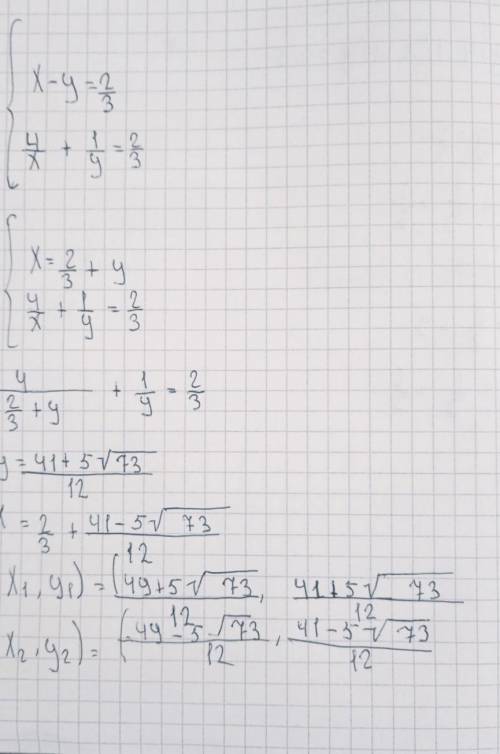 x - y = 2/3
4/x + 1/y = 2/3
x = 2/3 + y
4/x + 1/y = 2/3
4/(2/3 + y) + 1/y = 2/3
y = (41 + 5√73)/12
x = 2/3 + (41 - 5√73)/12
x₁, y₁) = ((49 + 5√73)/12, (41 + 5√73)/12
x₂, y₂) = ((49 - 5√73)/12, (41 - 5√73)/12